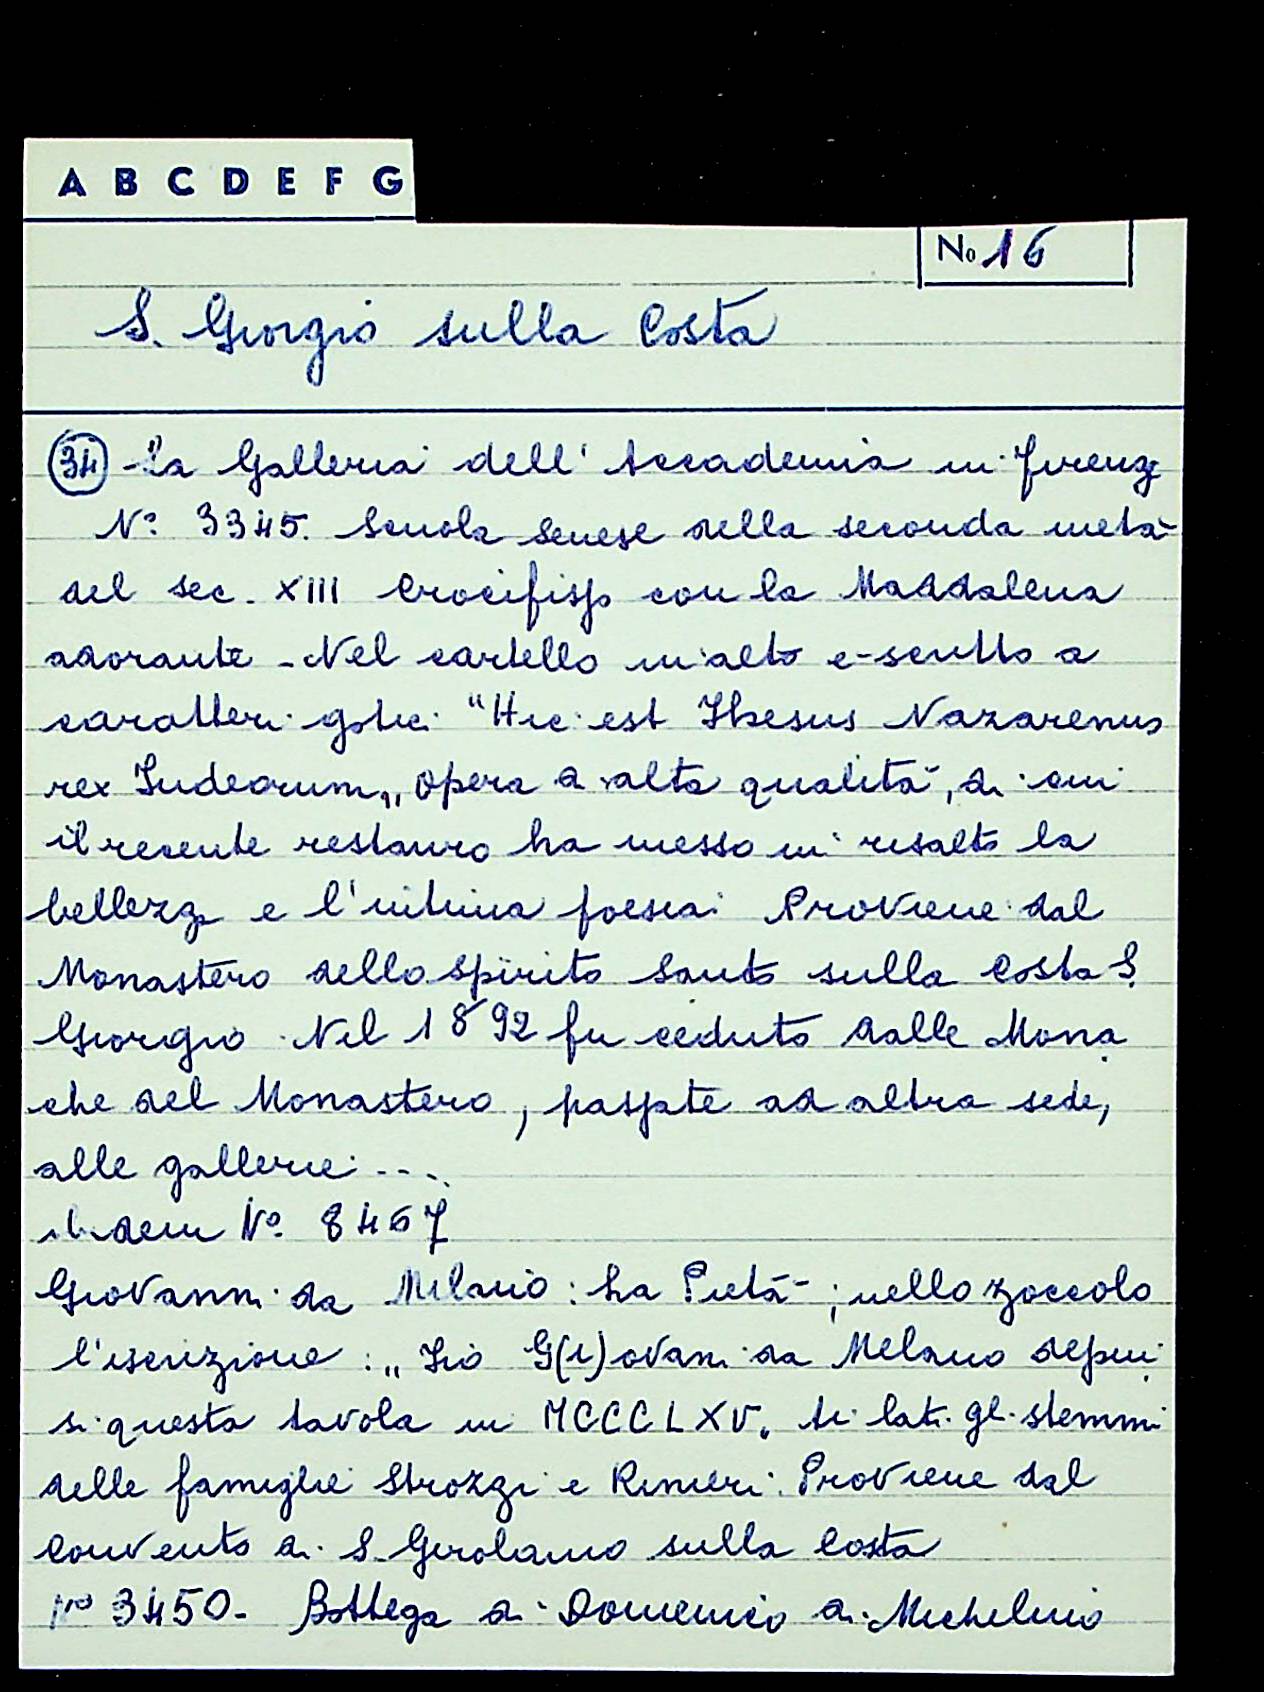 A B C D E F G
No 16
S. Giorgio sulla Costa
34 La Galleria dell' Accademia in Firenze
N° 3345. Scuola Senese della seconda metà
del sec. XIII Crocifisso con la Maddalena
adorante - Nel cartello in alto è scritto a
caratteri gotici "Hic est Ihesus Nazarenus
rex Iudeorum„ opera di alta qualità, di cui
il recente restauro ha messo in risalto la
bellezza e l'intima poesia. Proviene dal
Monastero dello Spirito Santo sulla Costa S.
Giorgio. Nel 1892 fu ceduto dalle Mona
che del Monastero, passate ad altra sede,
alle gallerie....
ibidem N° 8467
Giovanni da Milano: La Pietà; nello zoccolo
l'iscrizione: „Io G(i)ovani da Melano depin
si questa tavola in MCCCLXV„ Ai lati gli stemmi
delle famiglie Strozzi e Rinieri. Proviene dal
Convento di S. Girolamo sulla Costa
N° 3450. Bottega di Domenico di Michelino